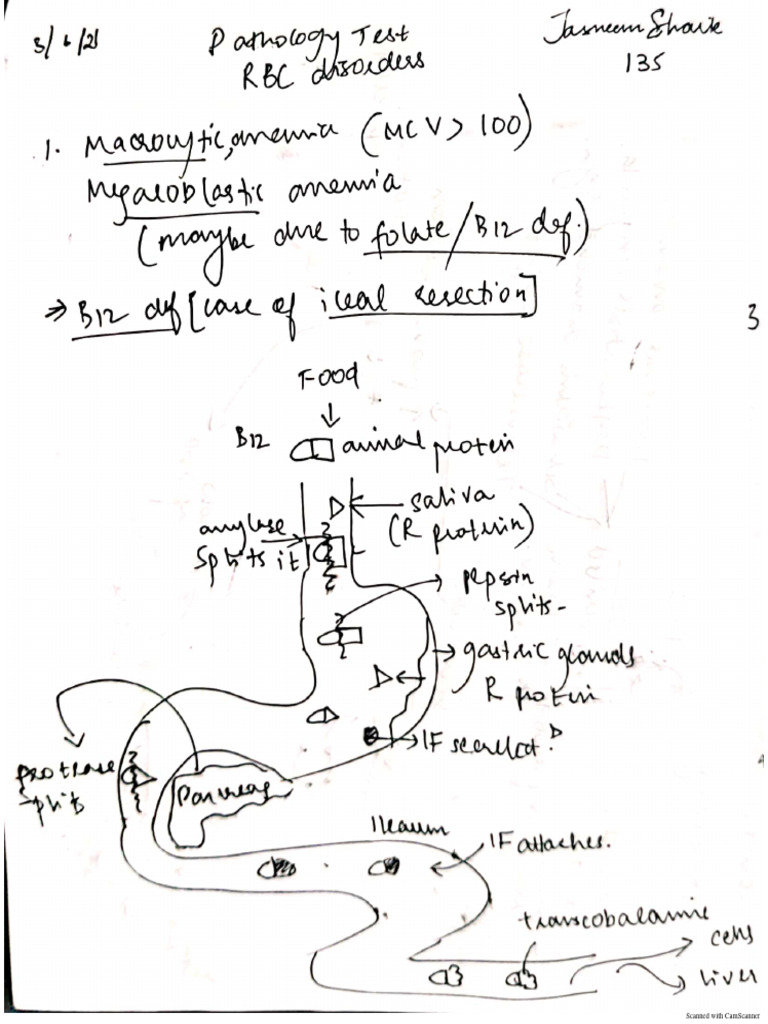 3/6/21
Pathology Test
RBC disorders
Tasneem Shaik
135
1. Macrocytic anemia (MCV > 100)
Megaloblastic anemia
(maybe due to folate/B12 def.)
⇒ B12 def [case of ileal resection]
3
Food
↓
B12 animal protein
saliva
(R protein)
amylase
splits it
pepsin
splits-
gastric glands
R protein
IF secreted
protease
splits
Pancreas
Ileaum
IF attaches.
transcobalamin
cells
liver
4
Scanned with CamScanner